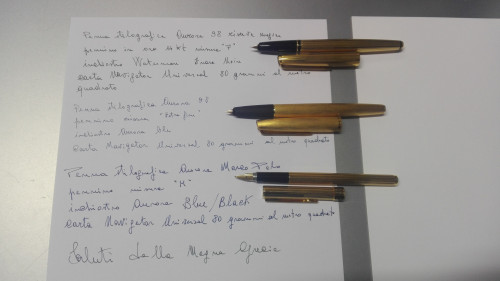 Penna stilografica Aurora 98 riserva magica
pennino in oro 14 KT misura "F"
inchiostro Waterman nero
carta Navigator Universal 80 grammi al metro
quadrato
Penna stilografica Aurora 98
pennino misura
inchiostro Aurora Blu
carta Navigator Universal 80 grammi al metro quadrato
Penna stilografica Aurora Marco Polo
pennino misura "M"
inchiostro Aurora Blue/Black
carta Navigator Universal 80 grammi al metro quadrato
Saluti dalla Magna Grecia